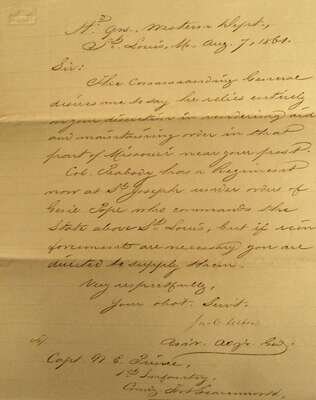 Hd. Qrs. Western Dept,
St. Louis, Mo. Aug. 7, 1861.
Sir:
The Commanding General
desires me to say he relies entirely
on your discretion in rendering aid
and maintaining order in that
part of Missouri near your post.
Col. Peabody has a Regiment
now at St. Joseph under orders of
Genl Pope who commands the
State above St. Louis, but if rein
forcements are necessary you are
directed to supply them.
Very respectfully,
Your obdt. Servt.
Jno. C.
Assis. Adj. Genl.
Capt. W. E. Prince,
1st Infantry,
Comdg. Fort Leavenworth,